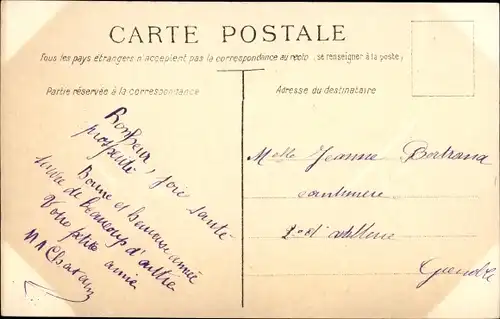 CARTE POSTALE
Tous les pays étrangers n'acceptent pas la correspondance au recto (se renseigner à la poste)
Partie réservée à la correspondance
Adresse du destinataire
Bonheur, joie santé
prospérité
Bonne et heureuse année
suivie de beaucoup d'autre
Votre petite amie
Melle Jeanne Bertrand
cantinière
Grenoble